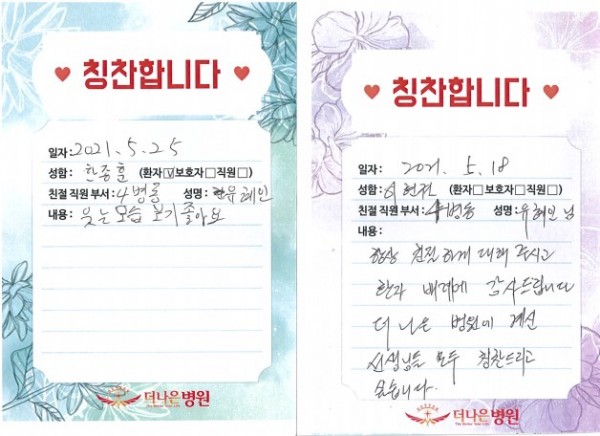 ♥ 칭찬합니다 ♥
일자: 2021. 5. 25
성함: 한종훈 (환자☑보호자☐직원☐)
친절 직원 부서: 4병동 성명: 유혜인
내용: 웃는 모습 보기 좋아요
더나은병원
♥ 칭찬합니다 ♥
일자: 2021. 5. 18
성함: 이현진 (환자☐보호자☐직원☐)
친절 직원 부서: 4병동 성명: 유혜인 님
내용:
항상 친절하게 대해 주시고
환자 배려에 감사드립니다
더 나은 병원에 계신
선생님들 모두 칭찬드리고
싶습니다.
더나은병원